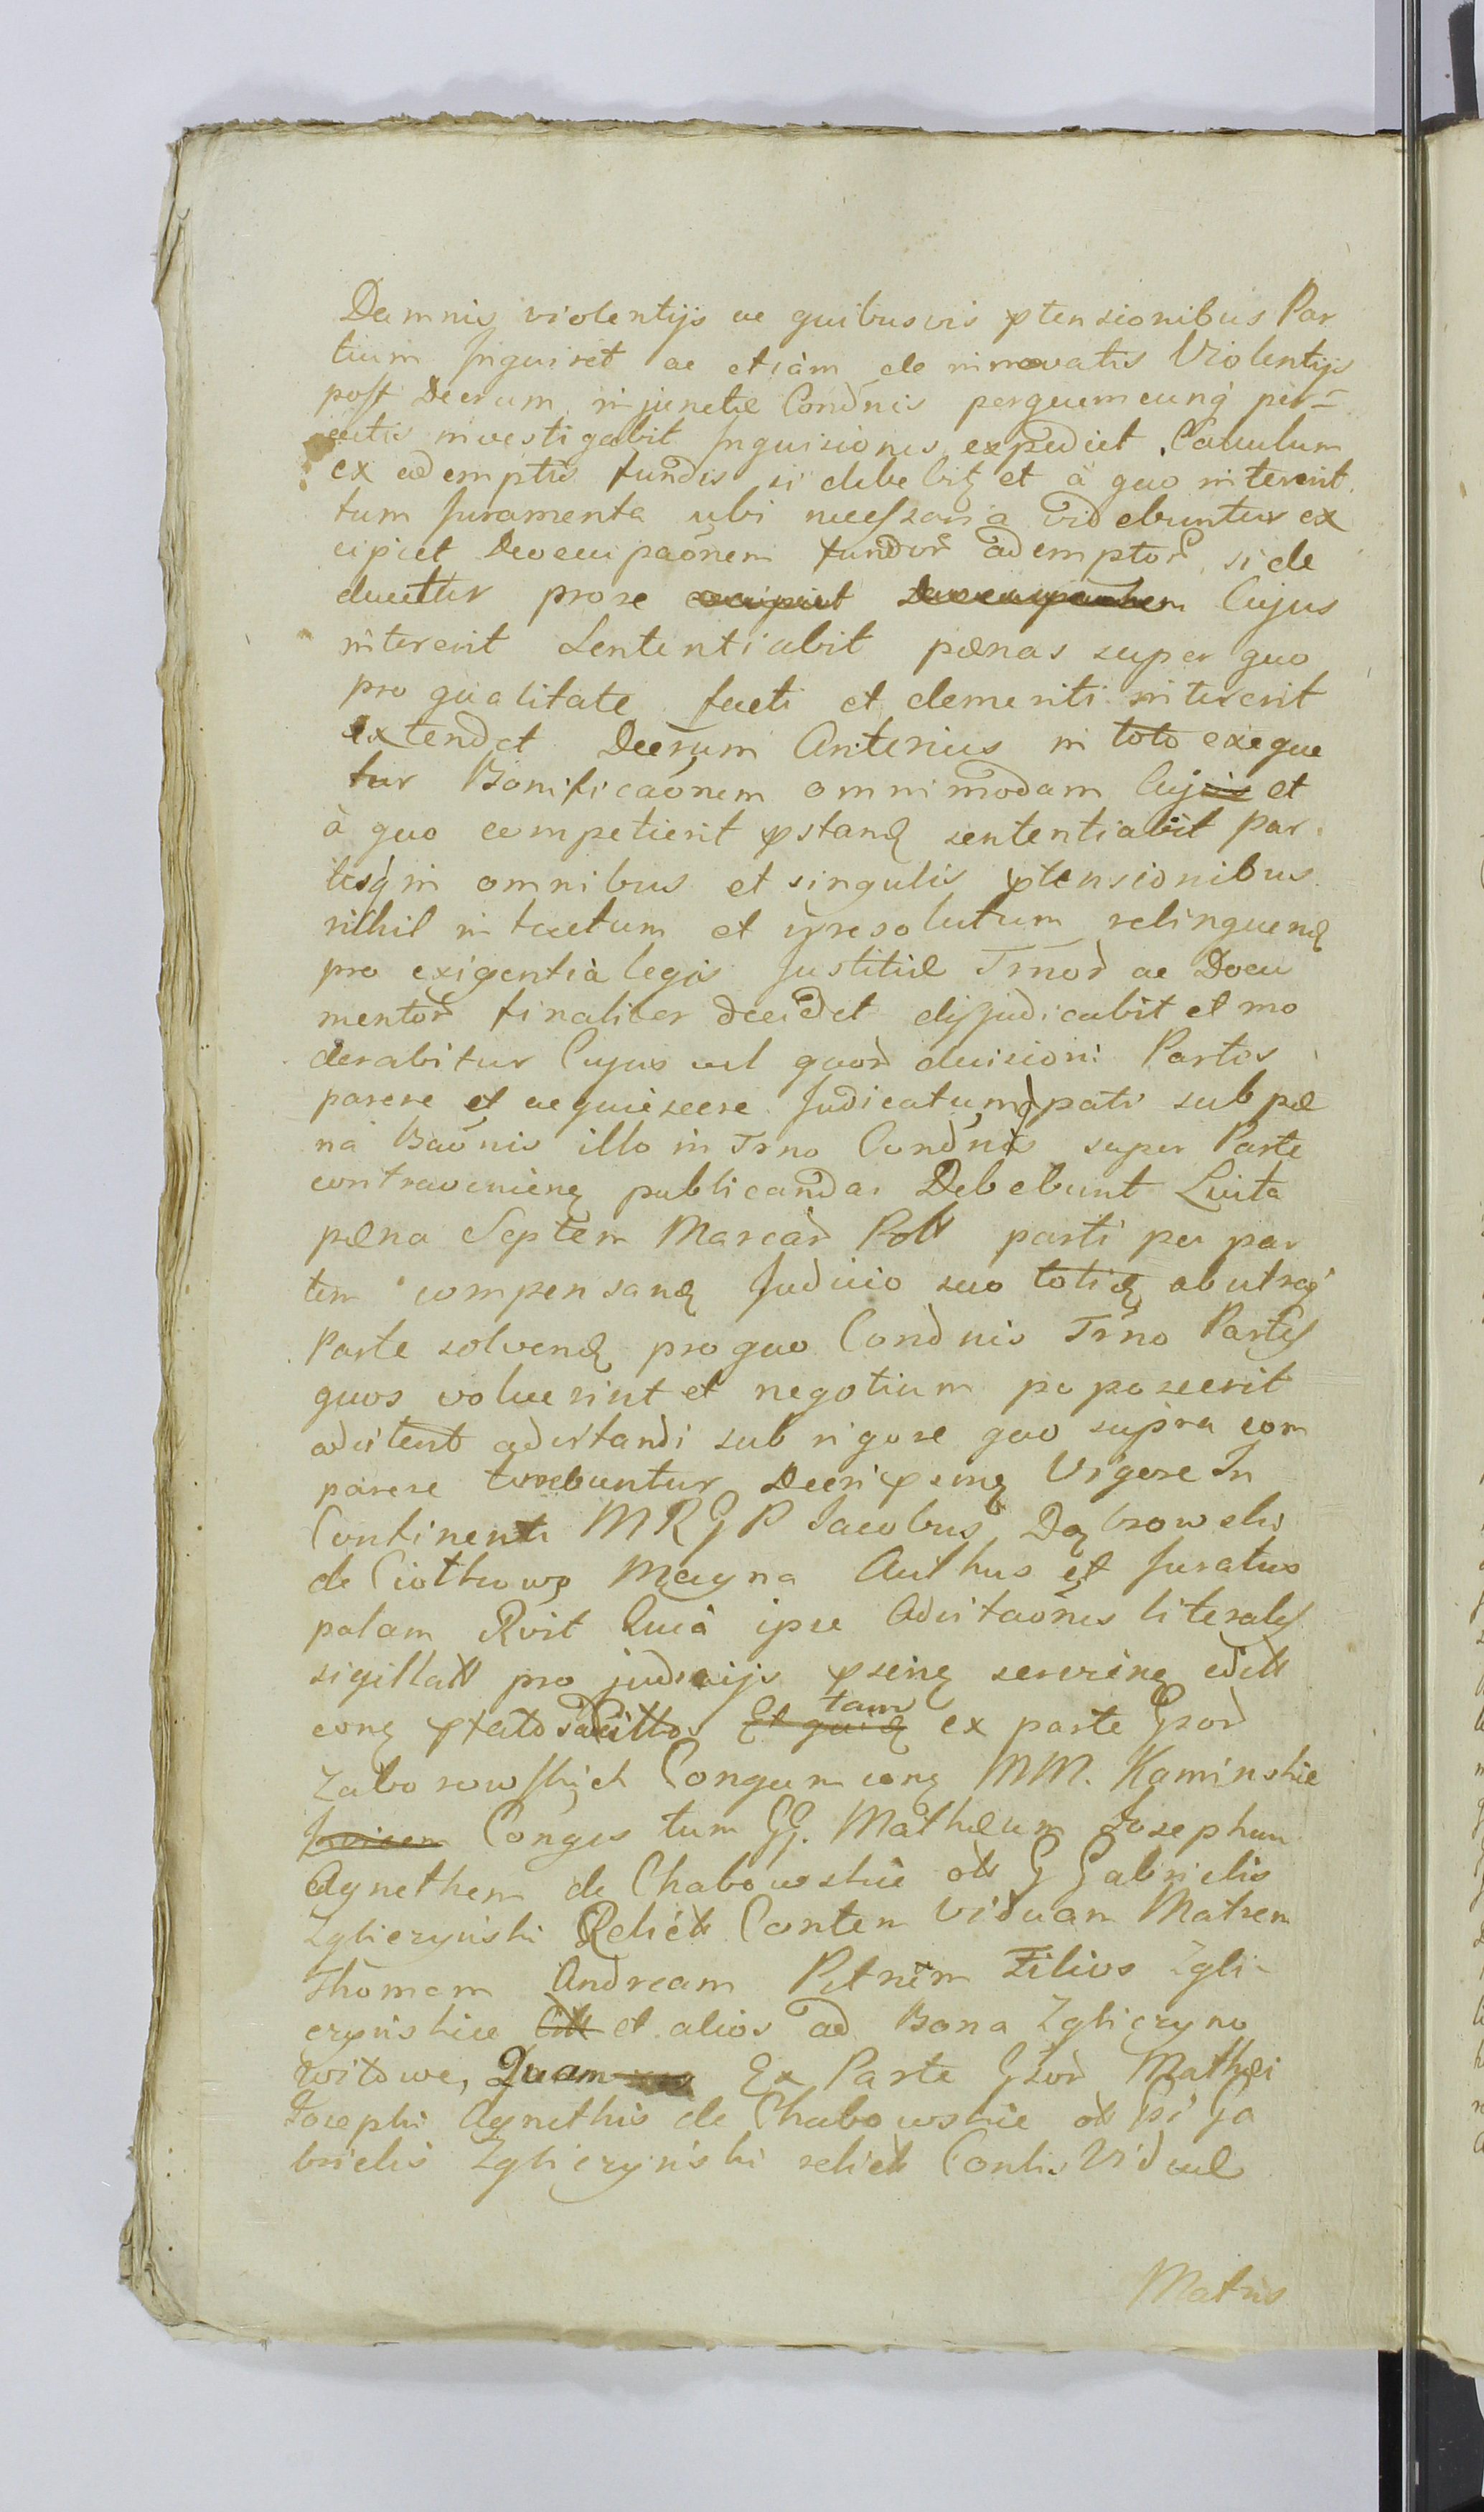 Damnis violentijs ac quibusvis ptensionibus Par
tium Inquiret ac etiàm de innovatis Violentijs
post Decrum injunctæ Condnis perquemcunq́ per=
actis investigabit Inquisiones expediet Calculum
ex ademptis fundis si debebit et à quo intererit
tum Juramenta ubi necessaria videbuntur ex
cipiet Deoccupaõnem fundoꝝ ademptoꝝ si de
ducetur pro re excipiet Deoccupaõnem Cujus
intererit Sententiabit pœnas super quo
pro qualitate facti et demeriti intererit
extendet Decrum Anterius in toto exeque
tur Bonificaõnem omnimodam Cujus et
à quo competierit pstanđ sententiabit par
tesq́ in omnibus et singulis ptensionibus
nihil intactum et irresolutum relinquenđ
pro exigentià legis Justitiæ Trnoꝝ ac Docu
mentoꝝ finaliter decidet disjudicabit et mo
derabitur Cujus vel quoꝝ decisioni Partes
parere et acquiescere Judicatumq́ pati sub pœ
na Baõnis illo in Trno Condnis super Parte
contravenienę publicanda Debebunt Luita
pœna Septem Marcaꝝ Poll parti per par
tem compensanđ Judicio suo totiđ ab utraq́
Parte solvenđ pro quo Condnis Trno Partes
quos voluerint et negotium poposcerit
adcitent adcitandi sub rigore quo supra com
parere tenebuntur Decri psenę Vigore In
Continenti MRGP Jacobus Dąbrowski
de Ciołkowo Magna Authus et Juratus
palam Rvit Quià ipse Adcitaõnes literales
sigillatt pro judicijs psenę servienę edidit
conę ptatos adcittos Et quiđ tam ex parte Gsoꝝ
Zaborowskich Congum conę MM. Kaminskie
Invicem Conges tum GG. Mathæum Josephum
Agnethem de Chabowskie ott G Gabrielis
Zglieczyński Relictt Contem Viduam Matrem
Thomam Andream Petrum Filios Zgli-
czynskiee Citt et alios ad Bona Zglieczyno
witowe, Quam Ex Parte Gsoꝝ Mathæi
Josephi Agnethis de Chabowskie ott Gsi Ga
brielis Zglieczyński relictt Contis Viduæ
Matris